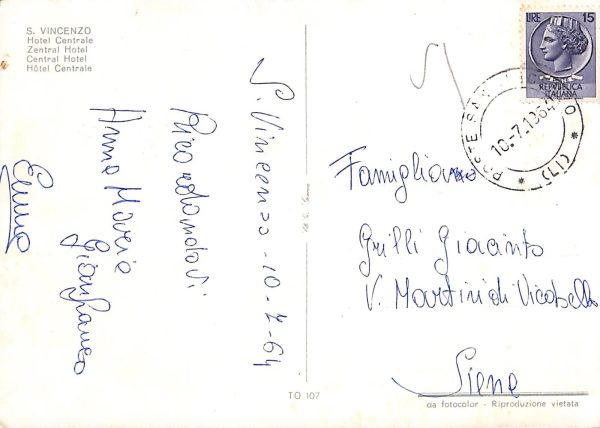 S. VINCENZO
Hotel Centrale
Zentral Hotel
Central Hotel
Hôtel Centrale
S. Vincenzo - 10-7-64
Ricordandovi
Anna Maria
Gianfranco
LIRE 15
REPUBBLICA
ITALIANA
POSTE SAN
10.-7.1964
(LI)
Famiglia
Grilli Giacinto
V. Martiri di Vicobello
Siena
TO 107
da fotocolor - Riproduzione vietata